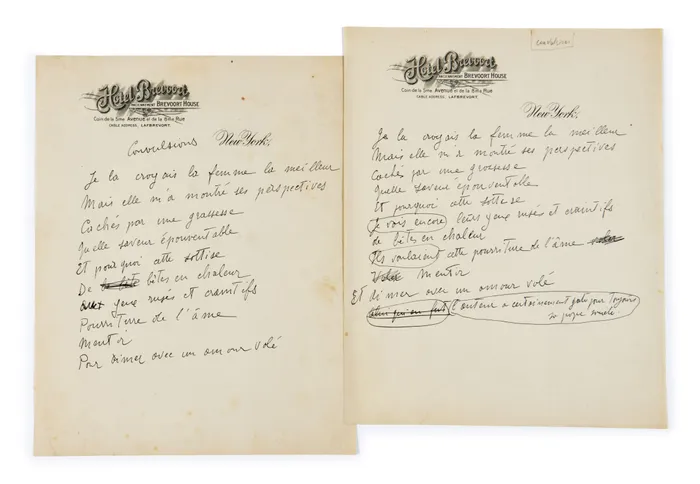 Hotel Brevoort
ANCIENNEMENT BREVOORT HOUSE
Coin de la 5me Avenue et de la 8me Rue
CABLE ADDRESS, LAFBREVORT.
New York,
Convulsions
Je la croyais la femme la meilleur
Mais elle m'a montré ses perspectives
Cachés par une grassesse
Quelle saveur épouventable
Et pourquoi cette sottise
De bêtes en chaleur
yeux rusés et craintifs
Pourriture de l'âme
Mentir
Par aimer avec un amour volé
Hotel Brevoort
ANCIENNEMENT BREVOORT HOUSE
Coin de la 5me Avenue et de la 8me Rue
CABLE ADDRESS, LAFBREVORT.
New York,
Je la croyais la femme la meilleur
Mais elle m'a montré ses perspectives
Cachés par une grossesse
Quelle saveur épouventable
Et pourquoi cette sottise
Je vois encore leurs yeux rusés et craintifs
de bêtes en chaleur
Ils voulaient cette pourriture de l'âme
Mentir
Et aimer avec un amour volé
L'auteur a certainement pour toujours
sa propre